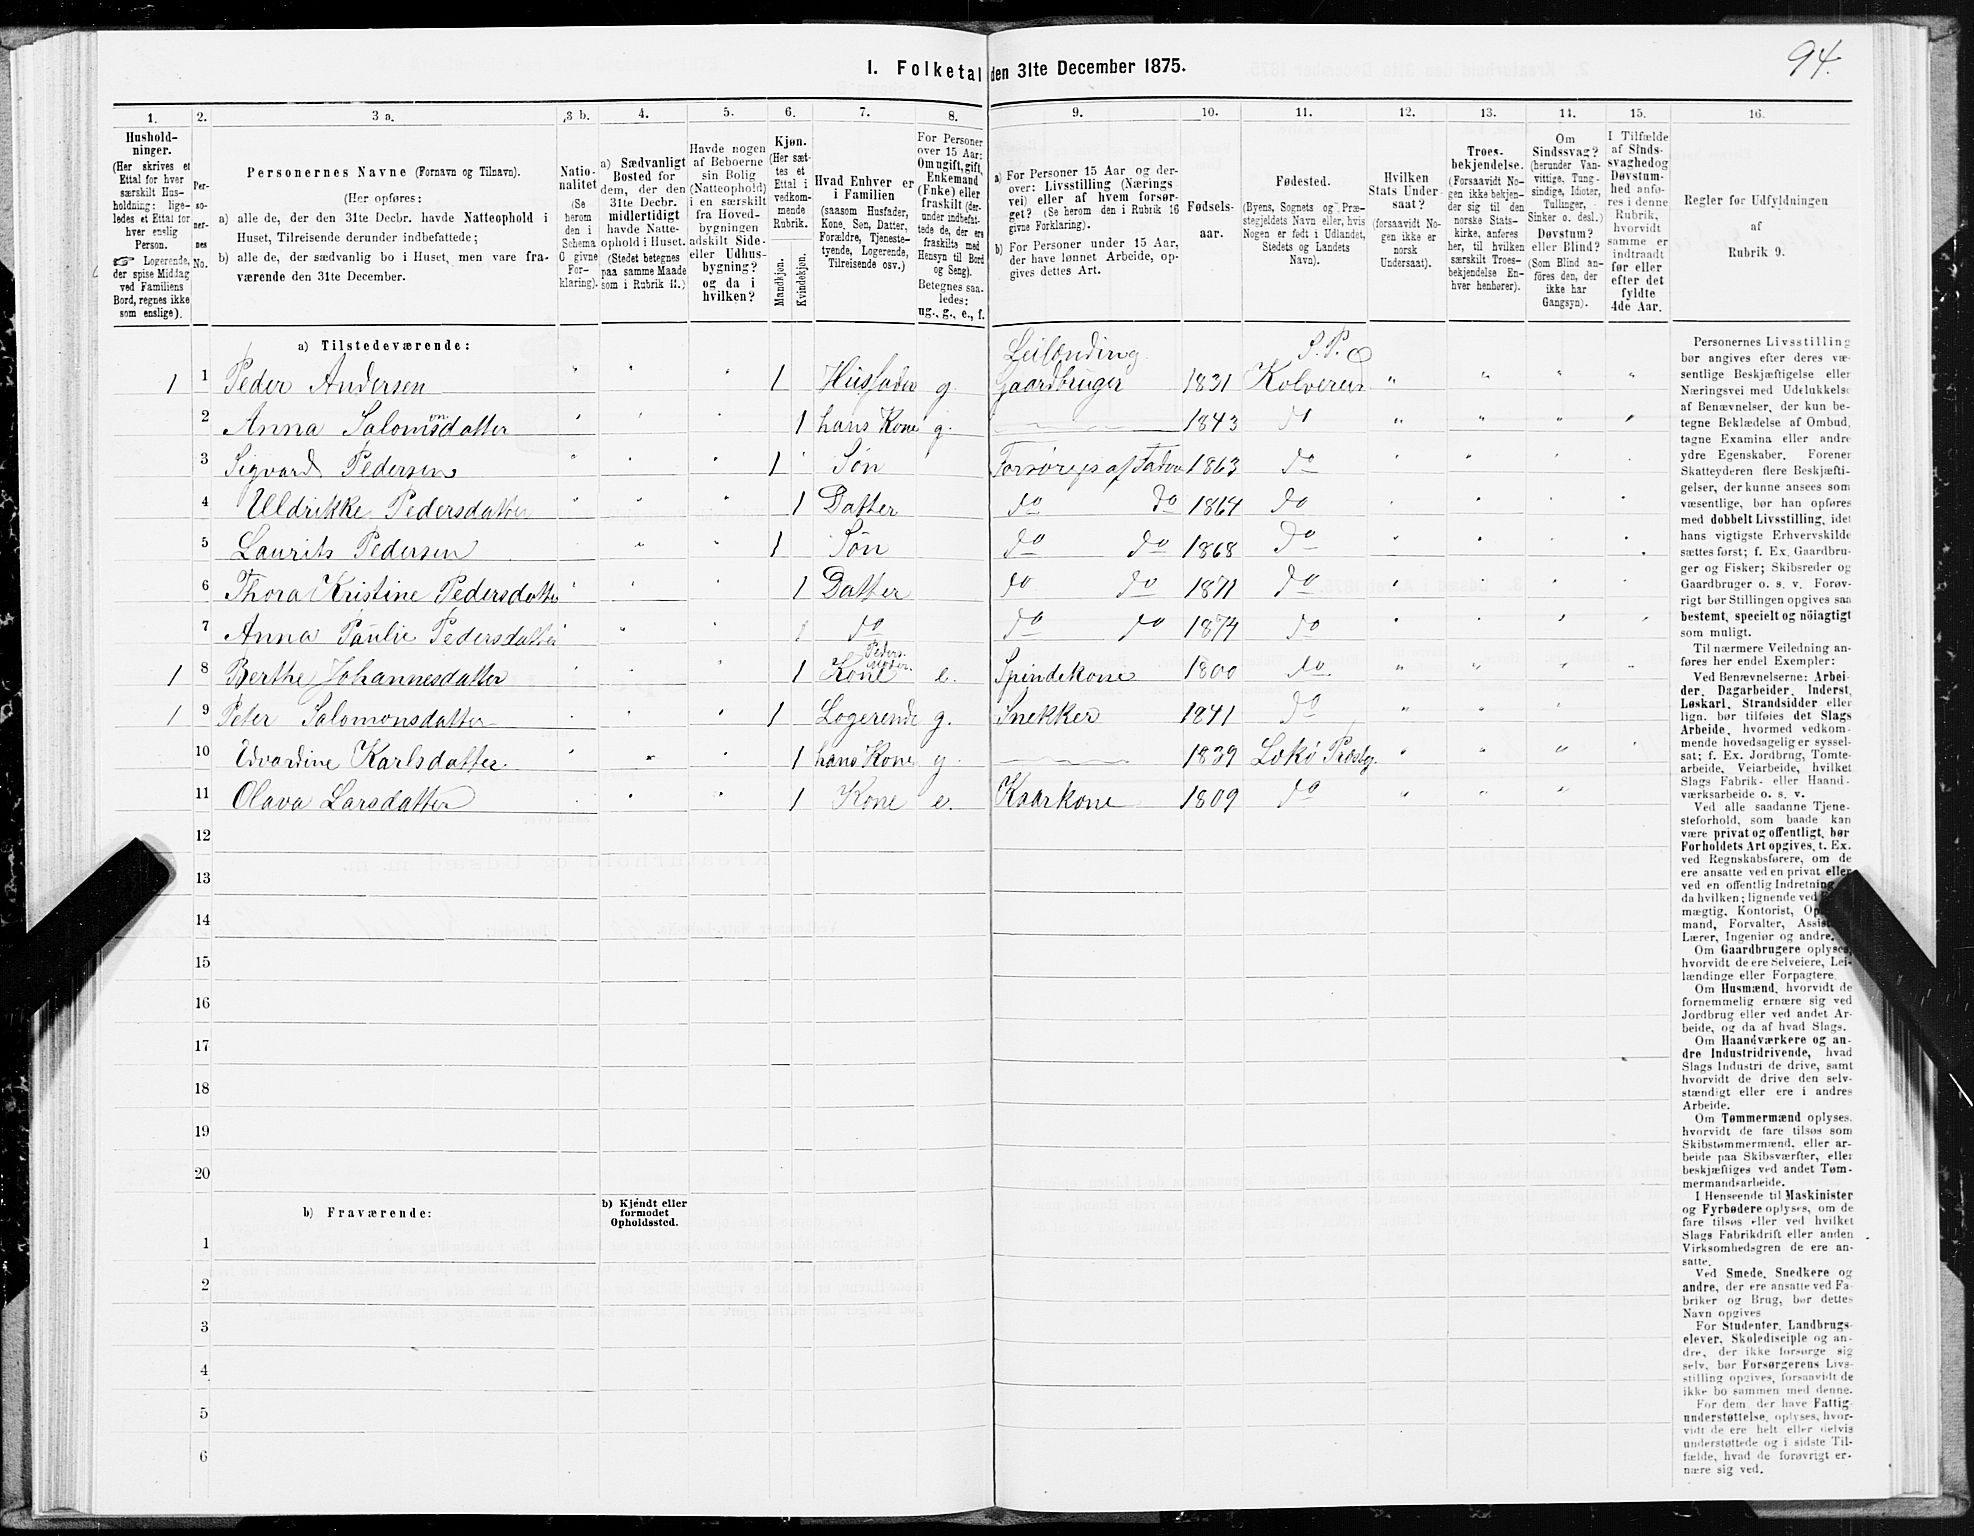 94.
I. Folketal den 31te December 1875.
1. 2. 3 a. 3 b. 4. 5. 6. 7. 8. 9. 10. 11. 12. 13. 14. 15. 16.
Hushold-
ninger.
(Her skrives et
Ettal for hver
særskilt Hus-
holdning: lige-
ledes et Ettal for
hver enslig
Person.
☞ Logerende,
der spise Middag
ved Familiens
Bord, regnes ikke
som enslige).
Per-
so-
ner-
nes
No.
Personernes Navne (Fornavn og Tilnavn).
(Her opføres:
a) alle de, der den 31te Decbr. havde Natteophold i
Huset, Tilreisende derunder indbefattede;
b) alle de, der sædvanlig bo i Huset, men vare fra-
værende den 31te December.
Natio-
nalitet
(Se
herom
den i
Schema
C givne
For-
klaring).
a) Sædvanligt
Bosted for
dem, der den
31te Decbr.
midlertidigt
havde Natte-
ophold i Huset.
(Stedet betegnes
paa samme Maade
som i Rubrik 11.)
Havde nogen
af Beboerne
sin Bolig
(Natteophold)
i en særskilt
fra Hoved-
bygningen
adskilt Side-
eller Udhus-
bygning?
og da i
hvilken?
Kjøn.
(Her sæt-
tes et
Ettal i
vedkom-
mende
Rubrik.
Mandkjøn.
Kvindekjøn.
Hvad Enhver er
i Familien
(saasom Husfader,
Kone, Søn, Datter,
Forældre, Tjeneste-
tyende, Logerende,
Tilreisende osv.)
For Personer
over 15 Aar:
Om ugift, gift,
Enkemand
(Enke) eller
fraskilt (der-
under indbefat-
tede de, der ere
fraskilte med
Hensyn til Bord
og Seng).
Betegnes saa-
ledes:
ug., g., e., f.
a) For Personer 15 Aar og der-
over: Livsstilling (Nærings-
vei) eller af hvem forsør-
get? (Se herom den i Rubrik 16
givne Forklaring).
b) For Personer under 15 Aar,
der have lønnet Arbeide, op-
gives dettes Art.
Fødsels-
aar.
Fødested.
(Byens, Sognets og Præ-
stegjeldets Navn eller, hvis
Nogen er født i Udlandet,
Stedets og Landets
Navn).
Hvilken
Stats Under-
saat?
(forsaavidt No-
gen ikke er
norsk
Undersaat).
Troes-
bekjendelse.
(Forsaavidt No-
gen ikke bekjen-
der sig til den
norske Stats-
kirke, anføres
her, til hvilken
særskilt Troes-
bekjendelse En-
hver henhører).
Om
Sindssvag?
(herunder Van-
vittige, Tung-
sindige, Idioter,
Tullinger,
Sinker o. desl.)
Døvstum?
eller Blind?
(Som Blind an-
føres den, der
ikke har
Gangsyn).
I Tilfælde
af Sinds-
svaghed og
Døvstum-
hed anfø-
res i denne
Rubrik,
hvorvidt
samme er
indtraadt
før eller
efter det
fyldte
4de Aar.
Regler for Udfyldningen
af
Rubrik 9.
a) Tilstedeværende:
Leilænding S. P.
1 1 Peder Andersen " " " 1 Husfader g. Gaardbruger 1831 Kolverein " " " "
2 Anna Salomonsdatter " " " 1 hans Kone g. 1843 do " " " "
3 Sigvard Pedersen " " " 1 Søn Forsørges af Fader 1863 do " " " "
4 Uldrikke Pedersdatter " " " 1 Datter do do 1864 do " " " "
5 Laurits Pedersen " " " 1 Søn do do 1868 do " " " "
6 Thora Kristine Pedersdatter " " " 1 Datter do do 1871 do " " " "
7 Anna Paulie Pedersdatter " " " 1 do do do 1874 do " " " "
Peders Moder
1 8 Berthe Johannesdatter " " " 1 Kone e. Spindekone 1800 do " " " "
1 9 Peter Salomonsdatter " " " 1 Logerende g. Snekker 1841 do " " " "
10 Edvardine Karlsdatter " " " 1 hans Kone g. 1839 Lekø Præstegj. " " " "
11 Olava Larsdatter " " " 1 Kone e. Kaarkone 1809 do " " "
12
13
14
15
16
17
18
19
20
b) Fraværende:
b) Kjendt eller
formodet
Opholdssted.
1
2
3
4
5
6
Personernes Livsstilling
bør angives efter deres væ-
sentlige Beskjæftigelse eller
Næringsvei med Udelukkelse
af Benævnelser, der kun be-
tegne Beklædelse af Ombud,
tagne Examina eller andre
ydre Egenskaber. Forener
Skatteyderen flere Beskjæfti-
gelser, der kunne ansees som
væsentlige, bør han opføres
med dobbelt Livsstilling, idet
hans vigtigste Erhvervskilde
sættes først; f. Ex. Gaardbru-
ger og Fisker; Skibsreder og
Gaardbruger o. s. v. Forøv-
rigt bør Stillingen opgives saa
bestemt, specielt og nöiagtigt
som muligt.
Til nærmere Veiledning an-
føres her endel Exempler:
Ved Benævnelserne: Arbei-
der, Dagarbeider, Inderst,
Løskarl, Strandsidder eller
lign. bør tilføies det Slags
Arbeide, hvormed vedkom-
mende hovedsagelig er syssel-
sat; f. Ex. Jordbrug, Tomte-
arbeide, Veiarbeide, hvilket
Slags Fabrik- eller Haand-
værksarbeide o. s. v.
Ved alle saadanne Tjene-
steforhold, som baade kan
være privat og offentligt, bør
Forholdets Art opgives, t. Ex.
ved Regnskabsførere, om de
ere ansatte ved en privat eller
ved en offentlig Indretning
da hvilken; lignende ved
mægtig, Kontorist,
mand, Forvalter,
Lærer, Ingeniør og andre.
Om Gaardbrugere oplyses,
hvorvidt de ere Selveiere, Lei-
lændinge eller Forpagtere.
Om Husmænd, hvorvidt de
fornemmelig ernære sig ved
Jordbrug eller ved andet Ar-
beide, og da af hvad Slags.
Om Haandværkere og an-
dre Industridrivende, hvad
Slags Industri de drive, samt
hvorvidt de drive den selv-
stændigt eller ere i andres
Arbeide.
Om Tømmermænd oplyses,
hvorvidt de fare tilsøs som
Skibstømmermænd, eller ar-
beide paa Skibsværfter, eller
beskjæftiges ved andet Tøm-
mermandsarbeide.
I Henseende til Maskinister
og Fyrbødere oplyses, om de
fare tilsøs eller ved hvilket
Slags Fabrikdrift eller anden
Virksomhedsgren de ere an-
satte.
Ved Smede, Snedkere og
andre, der ere ansatte ved Fa-
briker og Brug, bør dettes
Navn opgives
For Studenter, Landbrugs-
elever, Skoledisciple og an-
dre, der ikke forsørge sig
selv, bør Forsørgerens Livs-
stilling opgives, forsaavidt de
ikke bo sammen med denne.
For dem, der have Fattig-
understøttelse, oplyses, hvor-
vidt de ere helt eller delvis
understøttede og i sidste Til-
fælde, hvad de forøvrigt er-
nære sig ved.